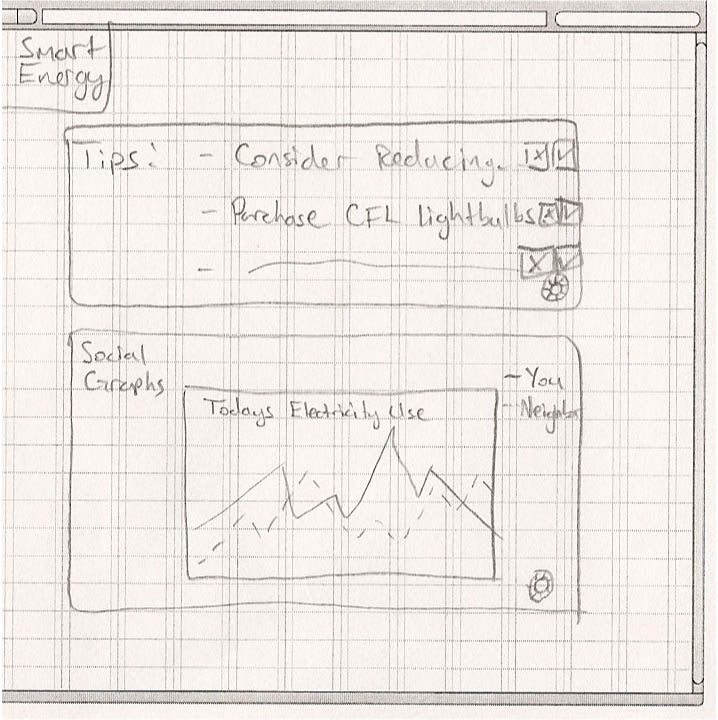 Smart
Energy
Tips:
- Consider Reducing.
- Purchase CFL lightbulbs
-
Social
Graphs
Todays Electricity Use
- You
-- Neighbor